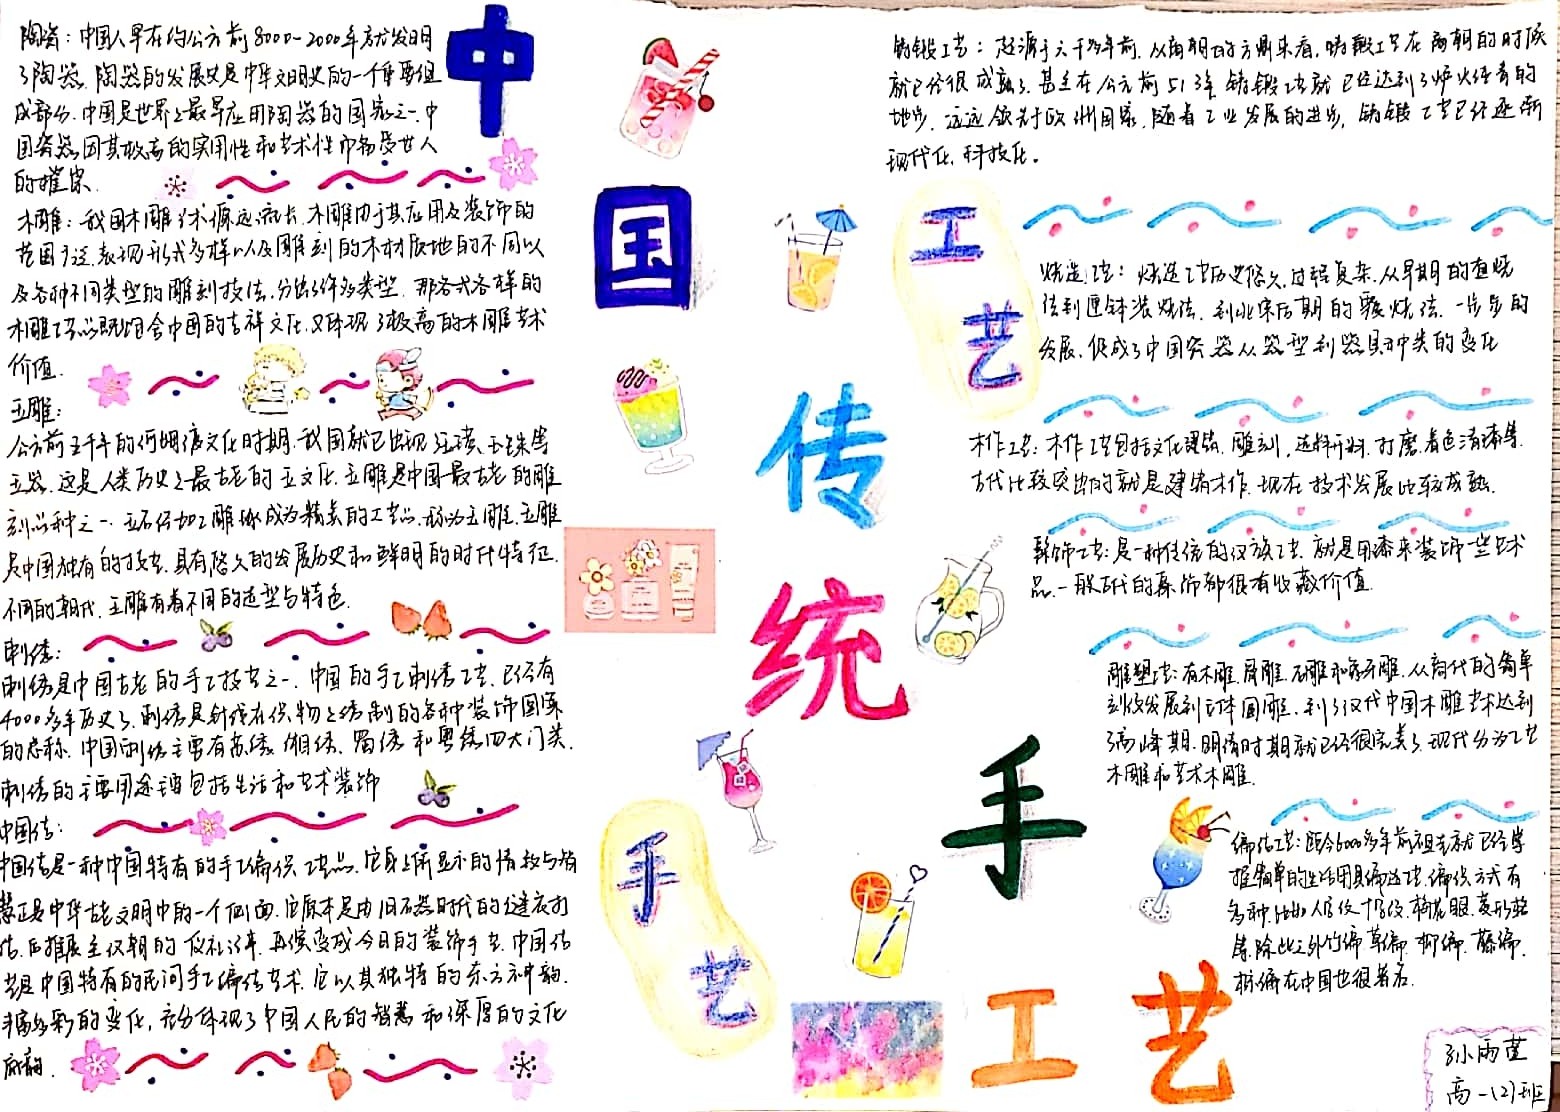 陶瓷：中国人早在约公元前8000-2000年就发明
了陶器．陶器的发展史是中华文明史的一个重要组
成部分．中国是世界上最早应用陶器的国家之一．中
国瓷器因其极高的实用性和艺术性而备受世人
的推崇．
木雕：我国木雕艺术源远流长．木雕由于其应用及装饰的
范围广泛．表现形式多样以及雕刻的木材质地的不同以
及各种不同类型的雕刻技法．分出许多类型．那各式各样的
木雕工艺品既饱含中国的吉祥文化．又体现了极高的木雕艺术
价值．
玉雕：
公元前五千年的河姆渡文化时期．我国就已出现玉璜、玉珠等
玉器．这是人类历史上最古老的玉文化．玉雕是中国最古老的雕
刻品种之一．玉石经加工雕琢成为精美的工艺品．称为玉雕．玉雕
是中国独有的技艺．具有悠久的发展历史和鲜明的时代特征．
不同的朝代．玉雕有着不同的造型与特色．
刺绣：
刺绣是中国古老的手工技艺之一．中国的手工刺绣工艺．已经有
4000多年历史了．刺绣是针线在织物上绣制的各种装饰图案
的总称．中国刺绣主要有苏绣、湘绣、蜀绣和粤绣四大门类．
刺绣的主要用途主要包括生活和艺术装饰
中国结：
中国结是一种中国特有的手工编织工艺品．它身上所显示的情致与智
慧正是中华古老文明中的一个侧面．它原本是由旧石器时代的缝衣打
结．后推展至汉朝的仪礼记事．再演变成今日的装饰手艺．中国结
艺是中国特有的民间手工编结艺术．它以其独特的东方神韵．
丰富多彩的变化，充分体现了中国人民的智慧和深厚的文化
底韵．
中
国
传
统
手
工
艺
工
艺
手
艺
铸锻工艺：起源于六千多年前．从商朝的方鼎来看，铸锻工艺在商朝的时候
就已经很成熟了．甚至在公元前513年铸锻工艺就已经达到了炉火纯青的
地步．远远领先于欧洲国家．随着工业发展的进步，铸锻工艺已经逐渐
现代化．科技化。
烧造工艺：烧造工艺历史悠久．过程复杂．从早期的直烧
法到匣钵装烧法．到北宋后期的覆烧法．一步步的
发展．促成了中国瓷器从器型到器具种类的变化
木作工艺：木作工艺包括文化理念．雕刻．选料开料．打磨着色清漆等．
古代比较突出的就是建筑木作．现在技术发展比较成熟．
髹饰工艺：是一种传统的汉族工艺．就是用漆来装饰一些艺术
品．一般古代的髹饰都很有收藏价值．
雕塑工艺：有木雕．骨雕．石雕和象牙雕．从商代的简单
刻纹发展到立体圆雕．到了汉代中国木雕艺术达到
了高峰期．明清时期就已经很完美了．现代分为工艺
木雕和艺术木雕．
编结工艺：距今6000多年前祖先就已经掌
握简单的生活用具编造工艺．编织方式有
多种．比如人字纹．十字纹．梅花眼．菱形格
等．除此之外竹编．草编．柳编．藤编．
棕编在中国也很著名．
孙雨萱
高一(2)班